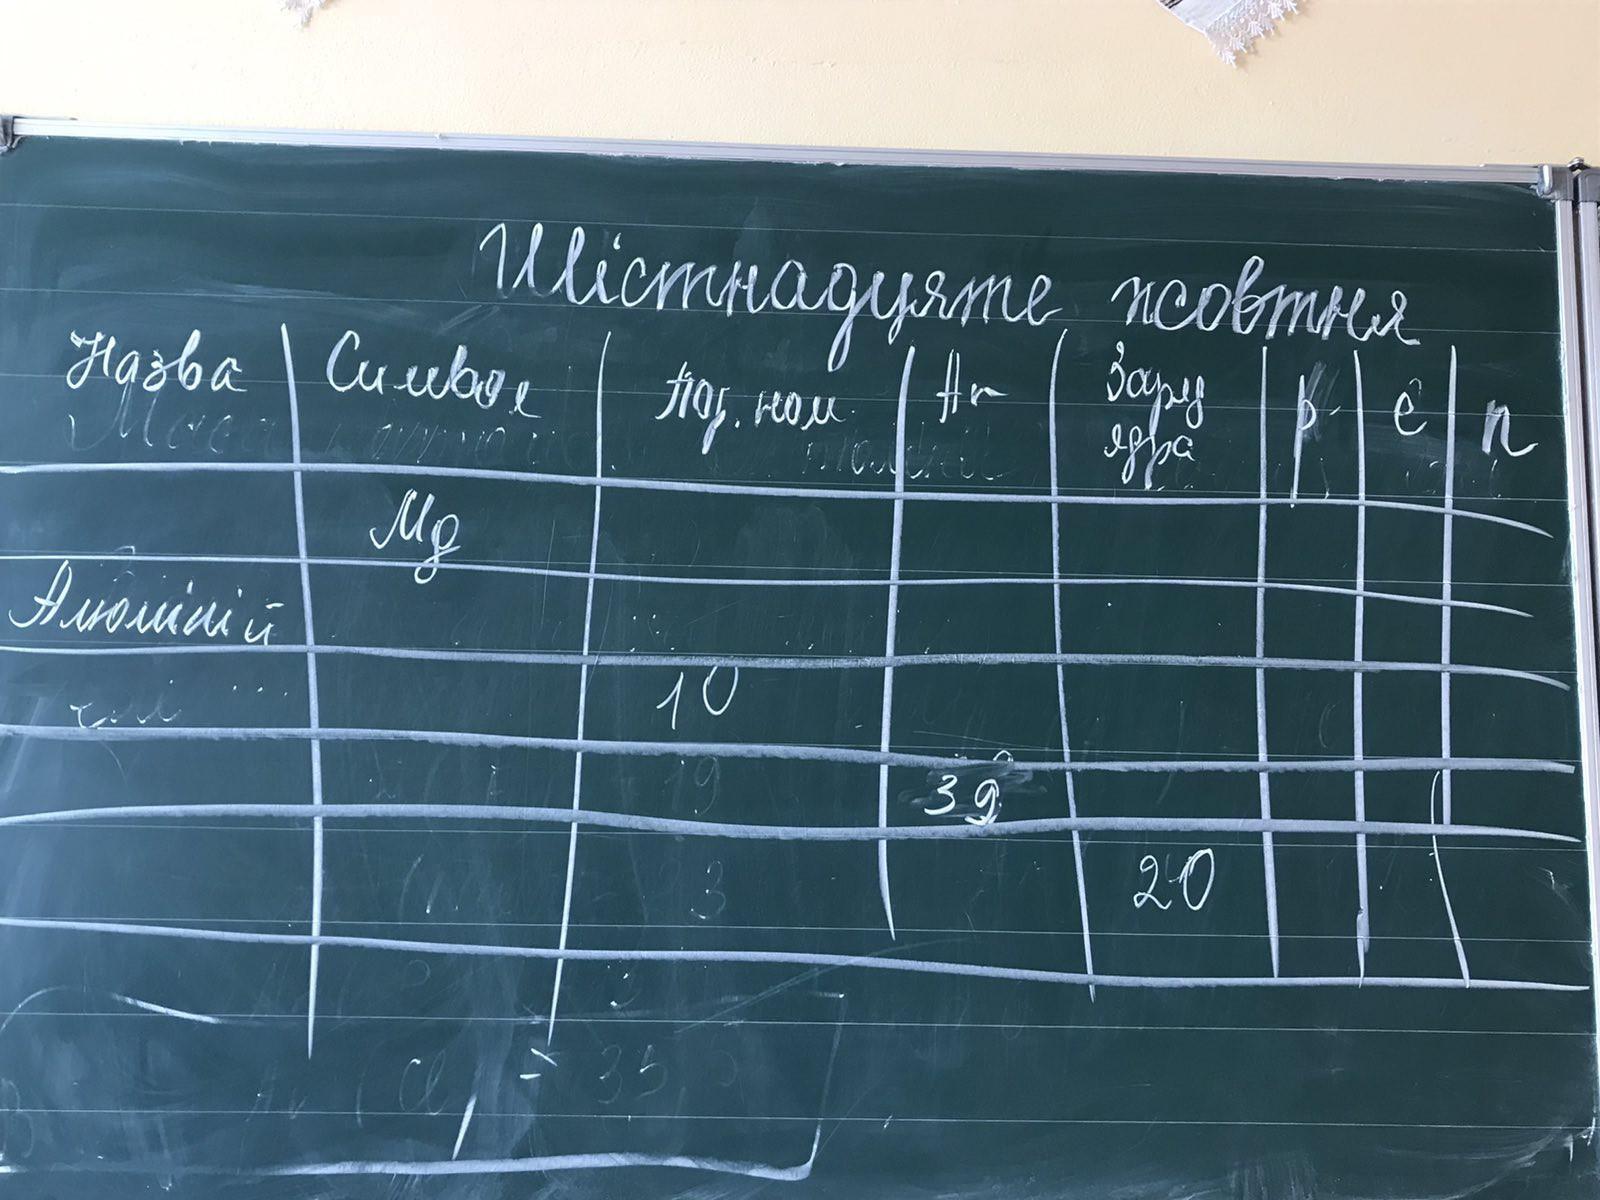 Шістнадцяте жовтня
Назва Символ Пор. ном Ar Заряд ядра p e n
Mg
Алюміній
10
39
20
Cl = 35